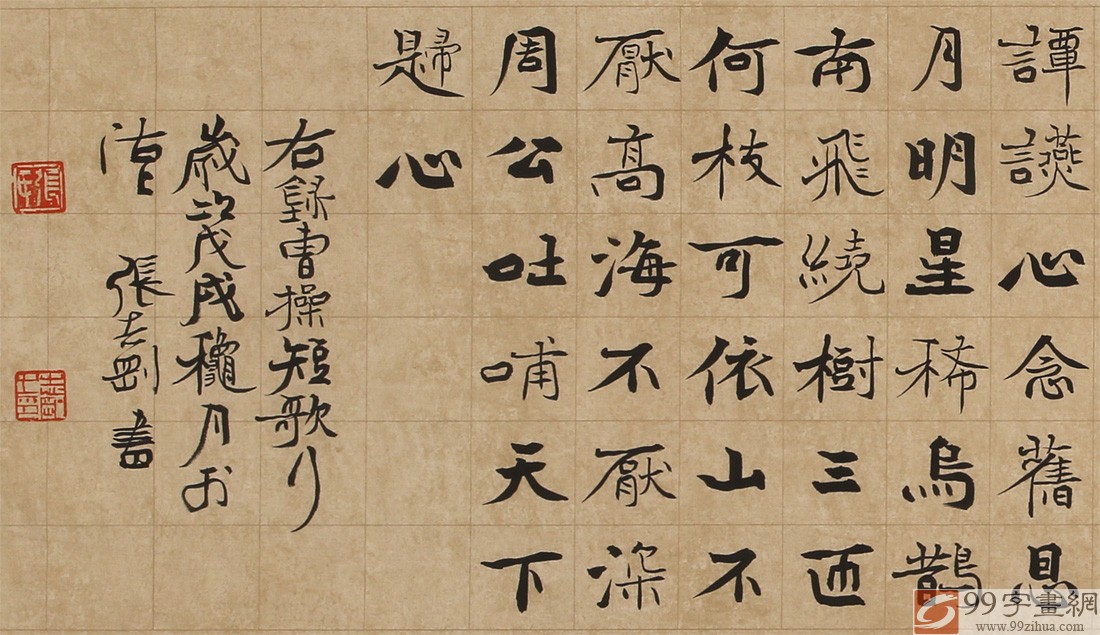 譚讌心念舊恩
月明星稀烏鵲
南飛繞樹三匝
何枝可依山不
厭高海不厭深
周公吐哺天下
歸心
右錄曹操短歌行
歲次戊戌龝月於
張志剛書
99字畫網
www.99zihua.com